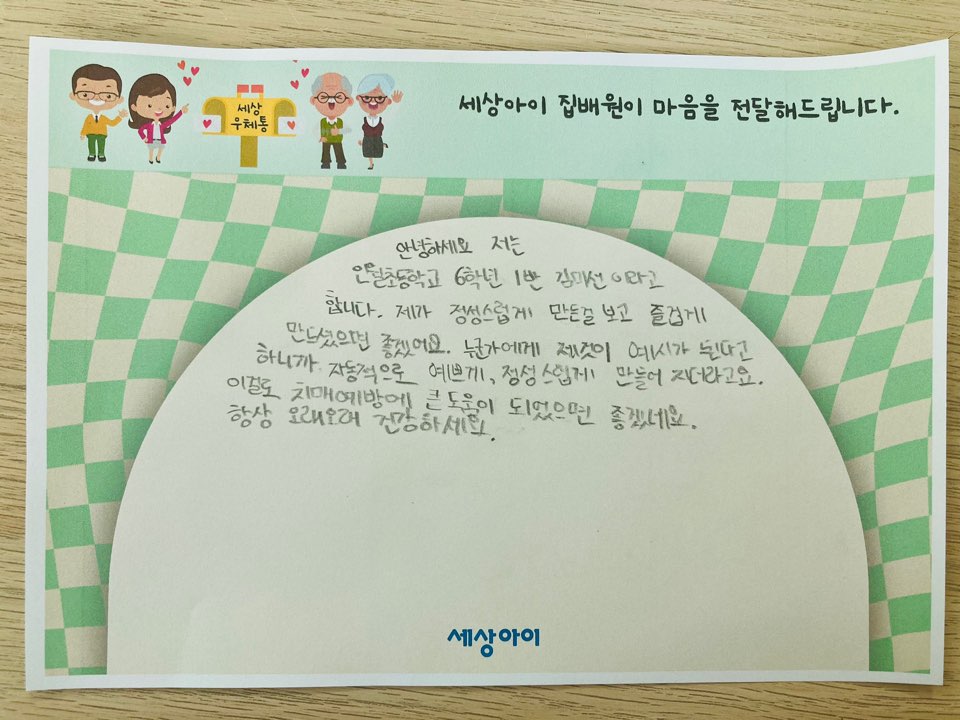 세상
우체통
세상아이 집배원이 마음을 전달해드립니다.
안녕하세요 저는
6학년 1반 김미선 이라고
합니다. 제가 정성스럽게 만든걸 보고 즐겁게
만드셨으면 좋겠어요. 누군가에게 제것이 예시가 된다고
하니까 자동적으로 예쁘게, 정성스럽게 만들어 지더라고요.
이걸로 치매예방에 큰 도움이 되었으면 좋겠네요.
항상 오래오래 건강하세요.
세상아이